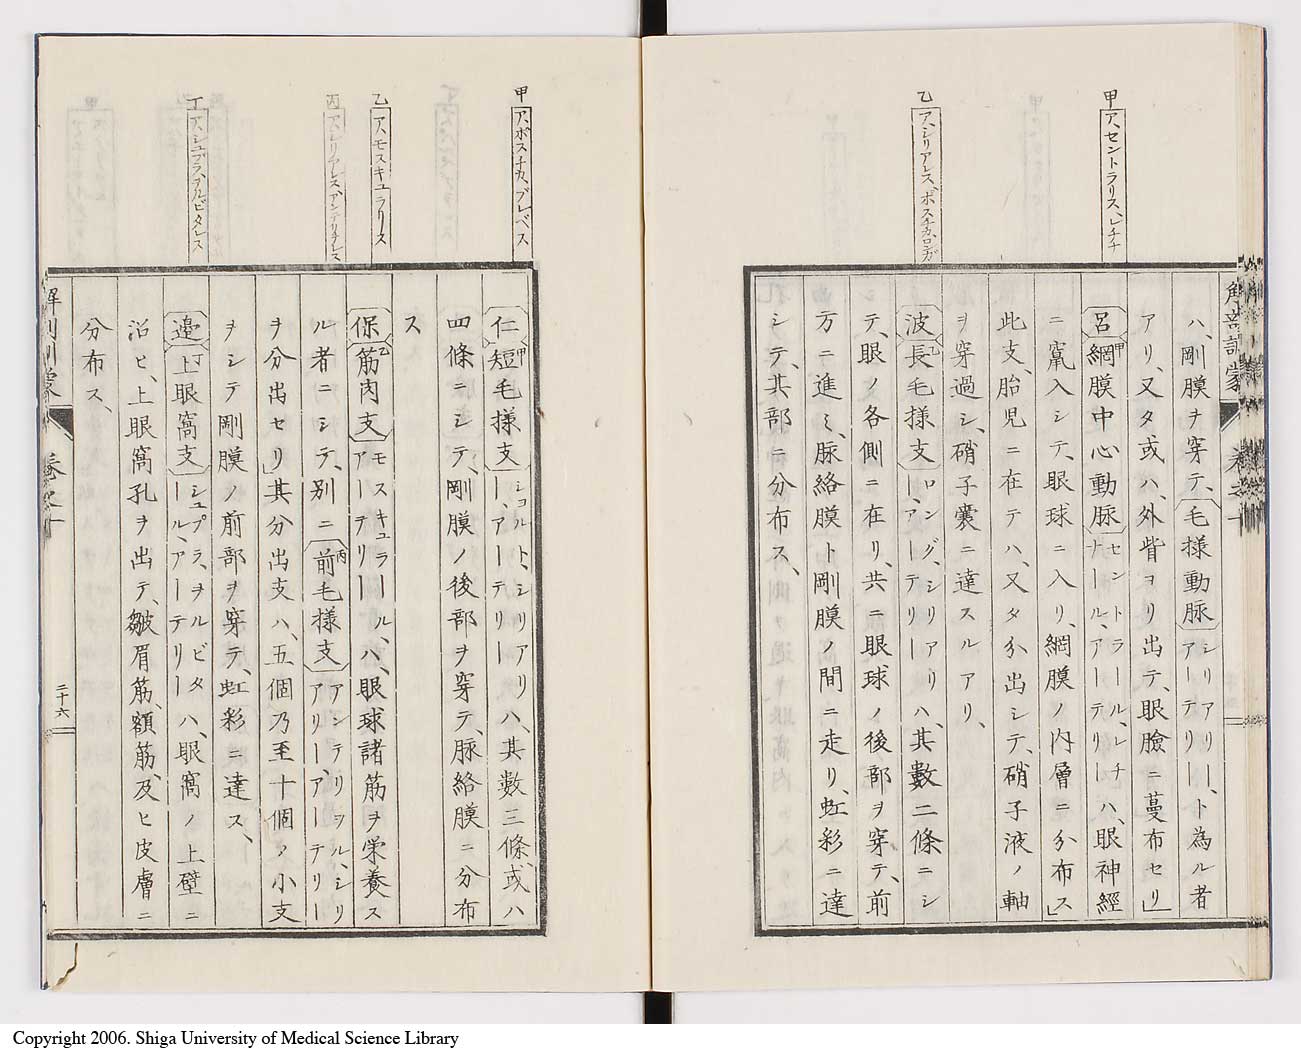 甲 ア、セントラリス、レチナ
乙 ア、シリアレス、ボスチカ、ロンガ
解剖訓蒙 巻之十
ハ、剛膜ヲ穿テ、毛様動脈 シリアリー、アーテリー、ト為ル者
アリ、又タ或ハ、外眥ヨリ出テ、眼瞼ニ蔓布セリ」
呂 甲網膜中心動脈 セントラール、レチナール、アーテリー ハ、眼神經
ニ竄入シテ、眼球ニ入リ、網膜ノ内層ニ分布ス」
此支、胎児ニ在テハ、又タ分出シテ、硝子液ノ軸
ヲ穿過シ、硝子囊ニ達スルアリ、
波 乙長毛様支 ロング、シリアリー、アーテリー ハ、其數二條ニシ
テ、眼ノ各側ニ在リ、共ニ眼球ノ後部ヲ穿テ、前
方ニ進ミ、脉絡膜ト剛膜ノ間ニ走リ、虹彩ニ達
シテ、其部ニ分布ス、
甲 ア、ボスチカ、ブレベス
乙 ア、モスキュラリス
丙 ア、シリアレス、アンテリヲレス
丁 ア、シュプラ、ヲルビタレス
仁 甲短毛様支 ショルト、シリアリー、アーテリー ハ、其數三條、或ハ
四條ニシテ、剛膜ノ後部ヲ穿テ、脉絡膜ニ分布
ス
保 乙筋肉支 モスキュラール、アーテリー ハ、眼球諸筋ヲ栄養ス
ル者ニシテ、別ニ丙前毛様支 アンテリヲル、シリアリー、アーテリー
ヲ分出セリ」其分出支ハ、五個乃至十個ノ小支
ヲシテ剛膜ノ前部ヲ穿テ、虹彩ニ達ス、
邉 丁上眼窩支 シュプラ、ヲルビタール、アーテリー ハ、眼窩ノ上壁ニ
沿ヒ、上眼窩孔ヲ出テ、皺眉筋、額筋、及ヒ皮膚ニ
分布ス、
解剖訓蒙 巻之十 二十六
Copyright 2006. Shiga University of Medical Science Library